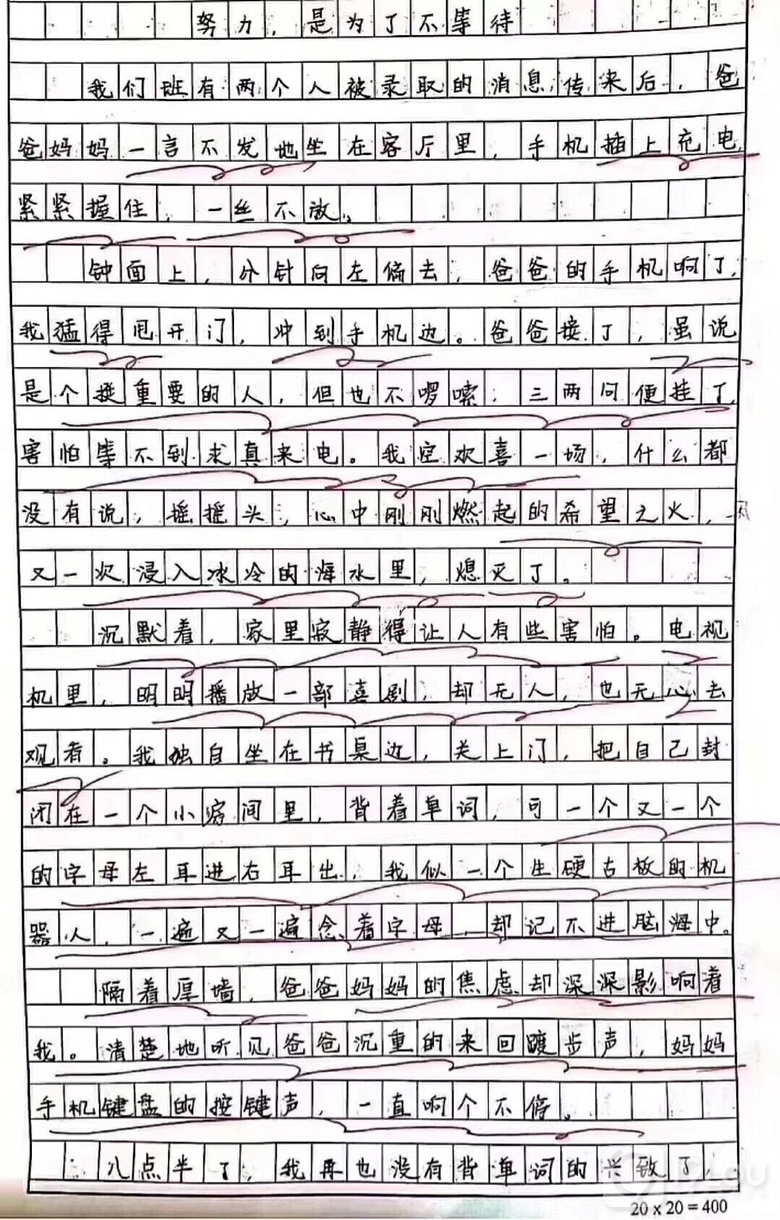 努力，是为了不等待
我们班有两个人被录取的消息传来后，爸
爸妈妈一言不发地坐在客厅里，手机插上充电
紧紧握住，一丝不放。
钟面上，分针向左偏去，爸爸的手机响了，
我猛得甩开门，冲到手机边。爸爸接了，虽说
是个挺重要的人，但也不啰嗦；三两问便挂了，
害怕等不到求真来电。我空欢喜一场，什么都
没有说，摇摇头，心中刚刚燃起的希望之火，
又一次浸入冰冷的海水里，熄灭了。
沉默着，家里寂静得让人有些害怕。电视
机里，明明播放一部喜剧，却无人，也无心去
观看。我独自坐在书桌边，关上门，把自己封
闭在一个小房间里，背着单词，可一个又一个
的字母左耳进右耳出，我似一个生硬古板的机
器人，一遍又一遍念着字母，却记不进脑海中。
隔着厚墙，爸爸妈妈的焦虑却深深影响着
我。清楚地听见爸爸沉重的来回踱步声，妈妈
手机键盘的按键声，一直响个不停。
八点半了，我再也没有背单词的兴致了，
20 x 20 = 400